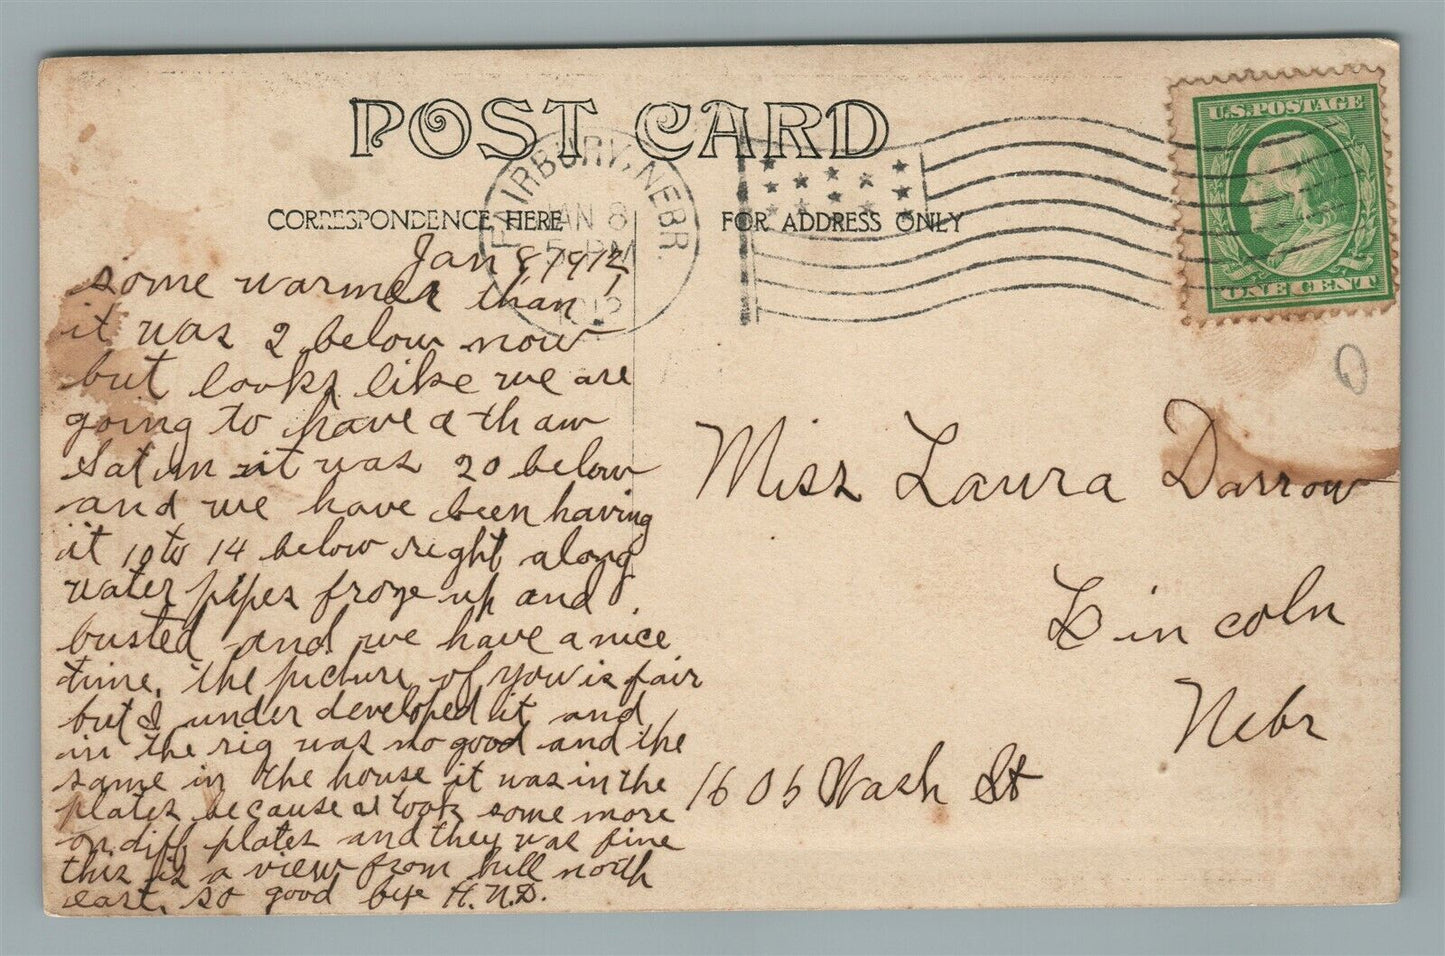 POST CARD
CORRESPONDENCE HERE
FOR ADDRESS ONLY
FAIRBURY, NEBR.
JAN 8
5 PM
1912
U.S. POSTAGE
ONE CENT
Jan 8, 1912
some warmer than
it was 2 below now
but looks like we are
going to have a thaw
Sat m it was 20 below
and we have been having
it 10 to 14 below right along
water pipes froze up and
busted and we have a nice
time. the picture of you is fair
but I under developed it and
in the rig was no good and the
same in the house it was in the
plates because I took some more
on diff plates and they was fine
this is a view from hill north
east. so good bye H.N.D.
Miss Laura Darrow
Lincoln
Nebr
1606 Wash St